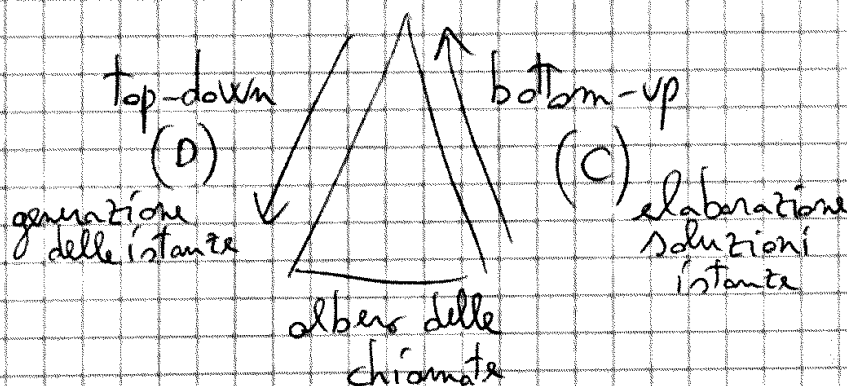 top-down
(D)
generazione
delle istanze
bottom-up
(C)
elaborazione
soluzioni
istanze
albero delle
chiamate